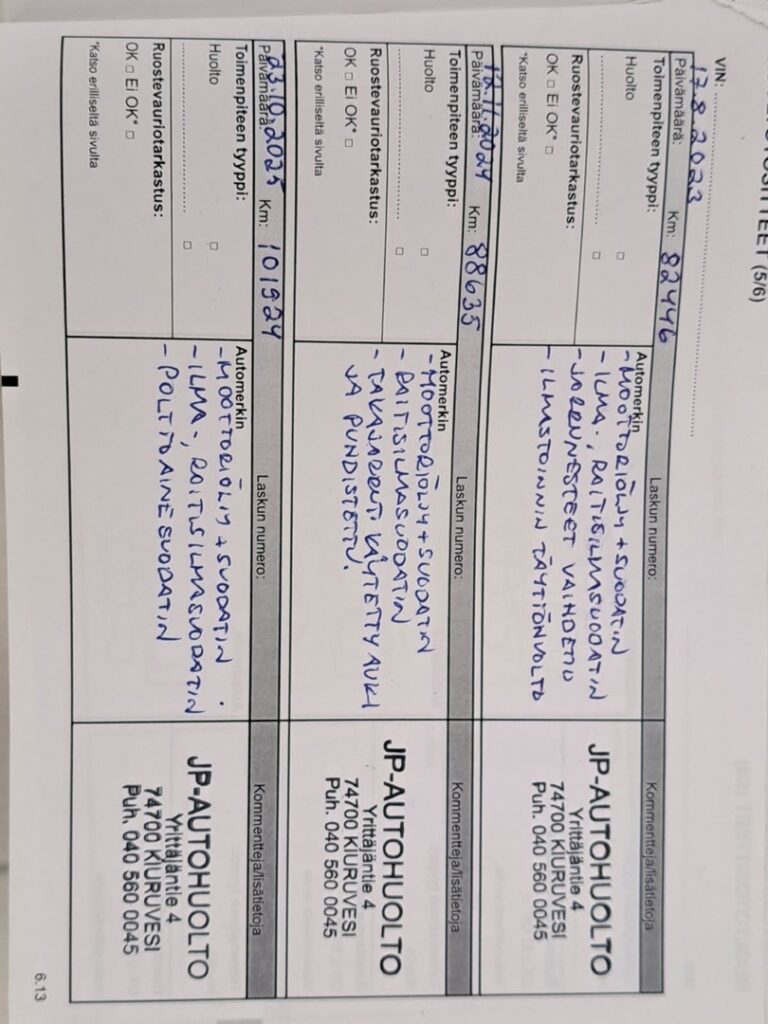 (5/6)
VIN:
Päivämäärä: 17.8.2023 Km: 82446 Laskun numero: Kommentteja/lisätietoja
Toimenpiteen tyyppi:
Huolto □
□
Ruostevauriotarkastus:
OK □ Ei OK* □
*Katso erilliseltä sivulta
Automerkin
- MOOTTORIÖLJY + SUODATIN
- ILMA-, RAITISILMASUODATIN
- JARRUNESTEET VAIHDETTU
- ILMASTOINNIN TÄYTTÖHUOLTO
JP-AUTOHUOLTO
Yrittäjäntie 4
74700 KIURUVESI
Puh. 040 560 0045
Päivämäärä: 12.11.2024 Km: 88635 Laskun numero: Kommentteja/lisätietoja
Toimenpiteen tyyppi:
Huolto □
□
Ruostevauriotarkastus:
OK □ Ei OK* □
*Katso erilliseltä sivulta
Automerkin
- MOOTTORIÖLJY + SUODATIN
- RAITISILMASUODATIN
- TAKAJARRUT KÄYTETTY AUKI
JA PUHDISTETTU.
JP-AUTOHUOLTO
Yrittäjäntie 4
74700 KIURUVESI
Puh. 040 560 0045
Päivämäärä: 23.10.2025 Km: 101924 Laskun numero: Kommentteja/lisätietoja
Toimenpiteen tyyppi:
Huolto □
□
Ruostevauriotarkastus:
OK □ Ei OK* □
*Katso erilliseltä sivulta
Automerkin
- MOOTTORIÖLJY + SUODATIN.
- ILMA-, RAITISILMASUODATIN
- POLTTOAINESUODATIN
JP-AUTOHUOLTO
Yrittäjäntie 4
74700 KIURUVESI
Puh. 040 560 0045
6.13